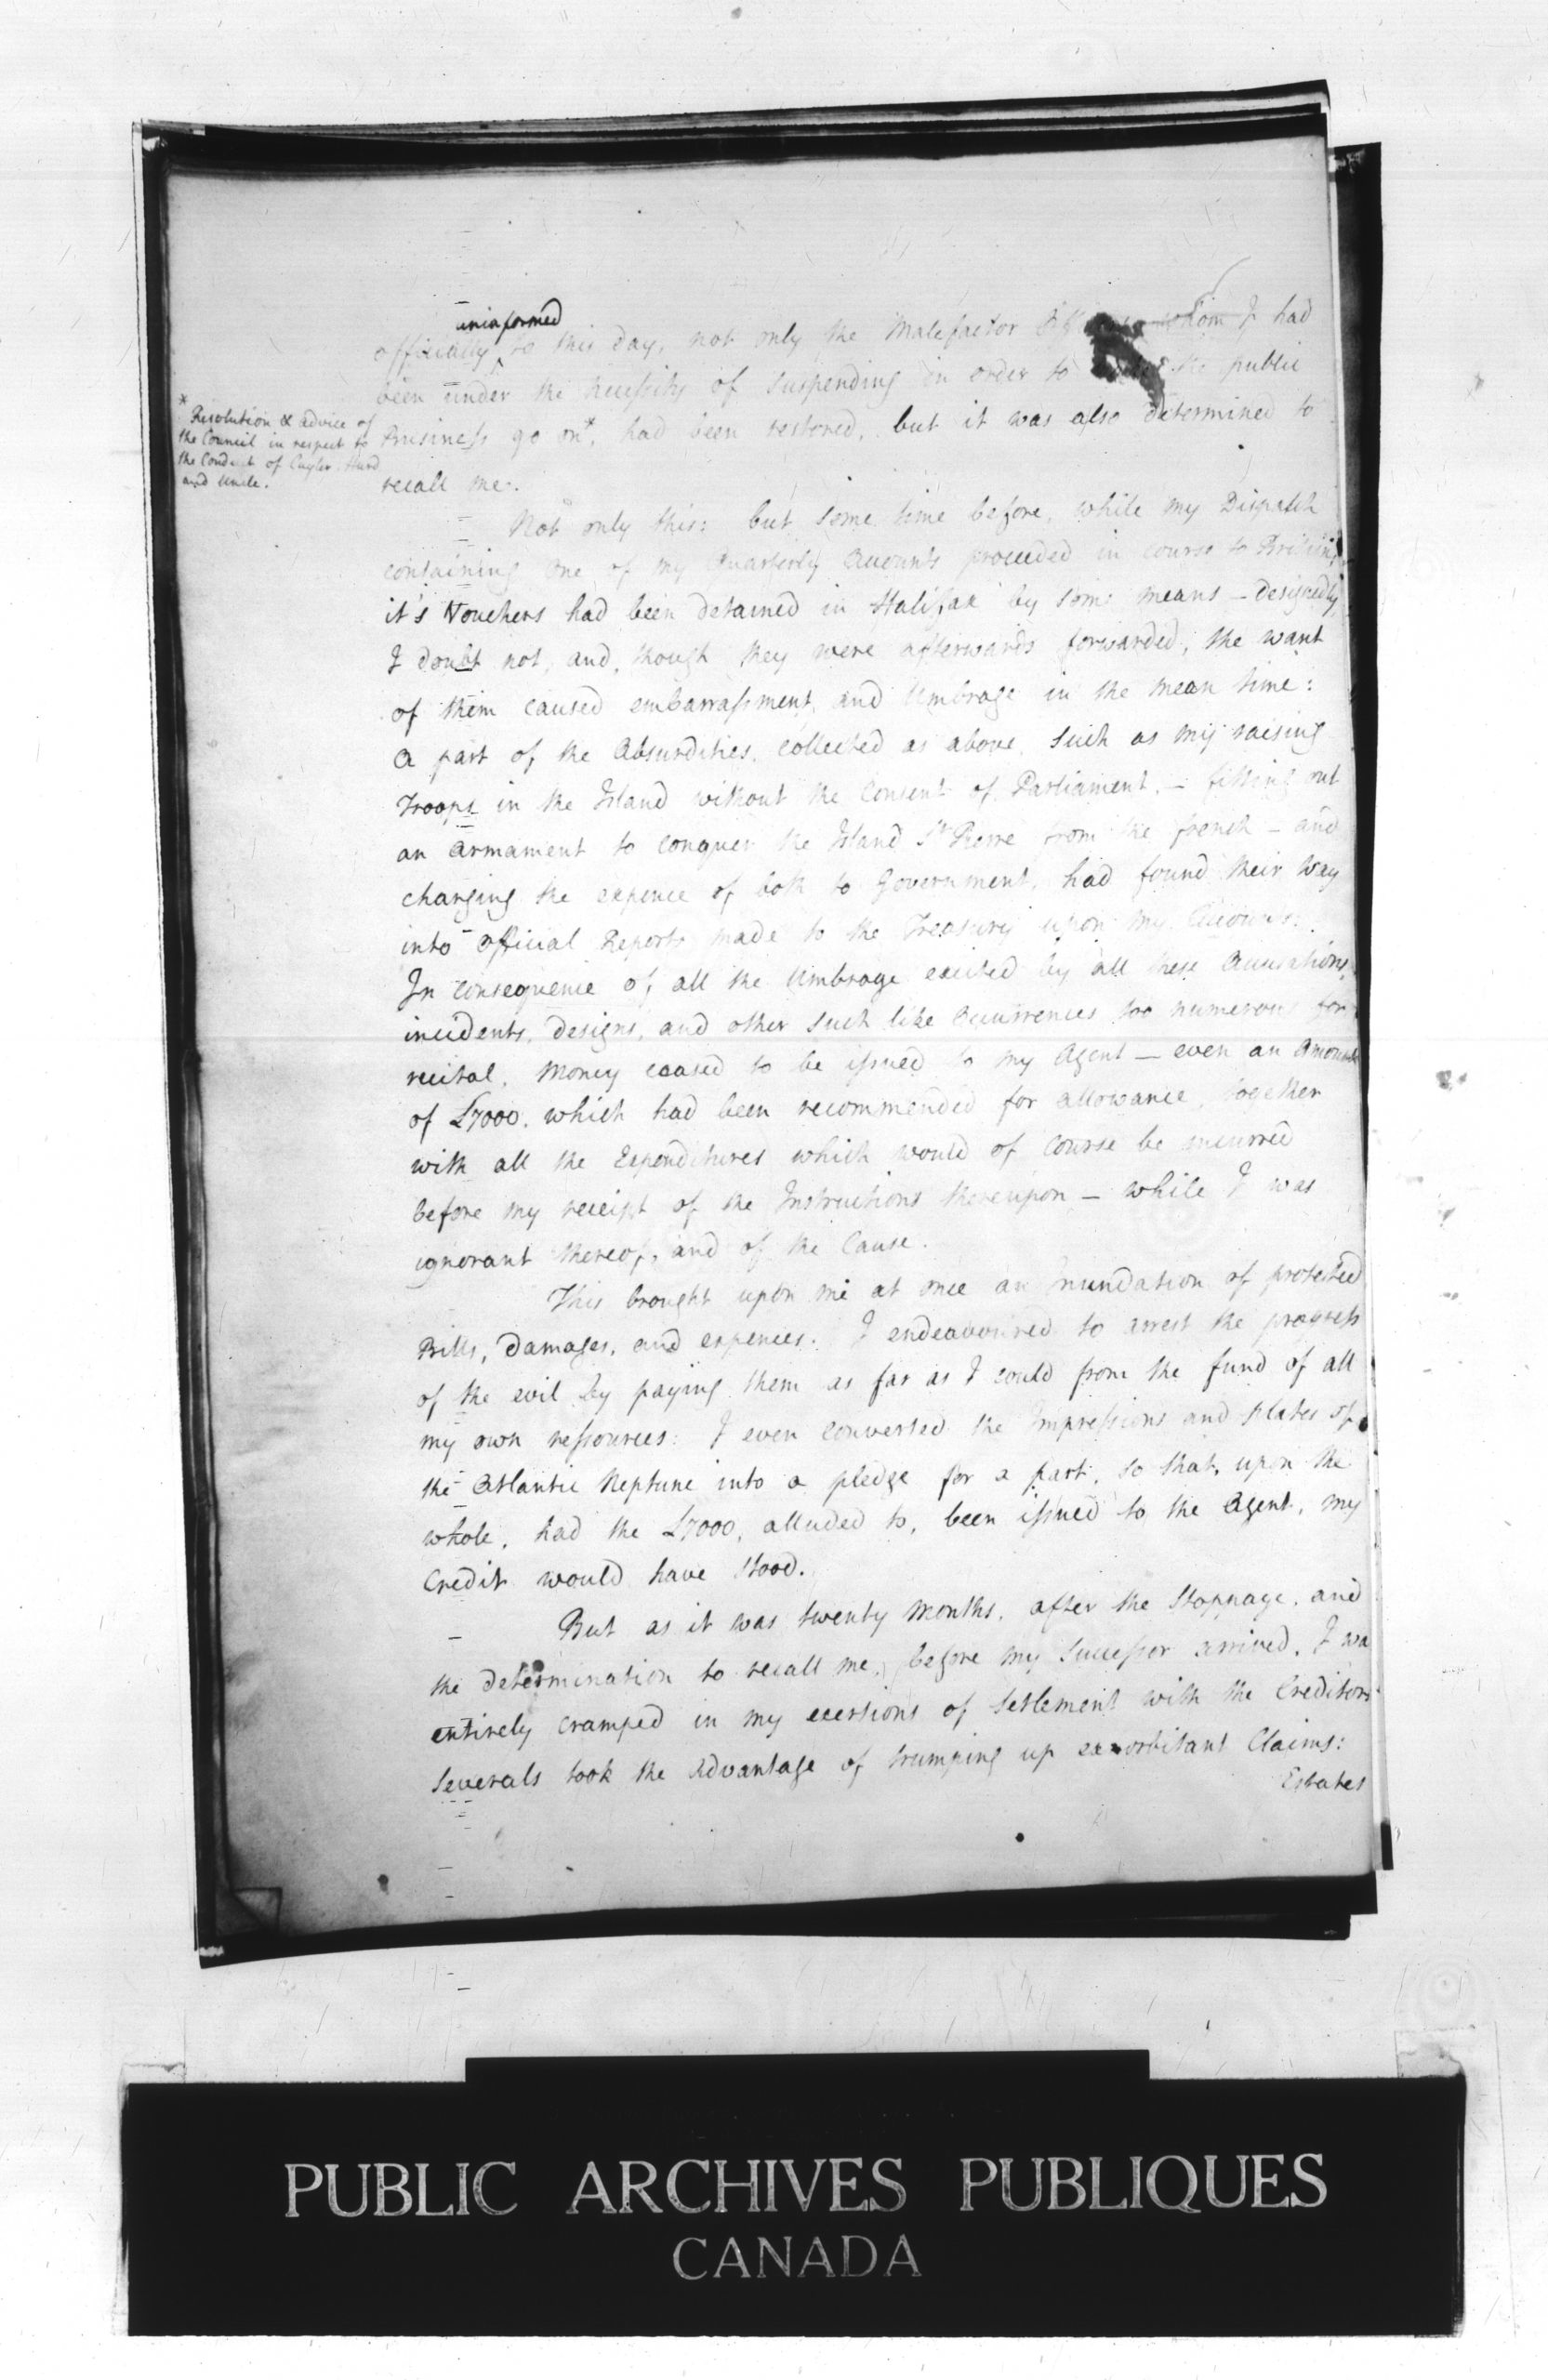 uninformed
officially to this day, not only the Malefactor whom I had
been under the necessity of suspending in order to the public
Business go on*, had been restored, but it was also determined to
recall me.
* Resolution & advice of
the Council in respect to
the Conduct of Cuyler, Hurd
and Uncle.
Not only this: but some time before, while my Dispatch
containing one of my Quarterly Accounts proceeded in course to Britain,
it's Vouchers had been detained in Halifax by some means – designedly
I doubt not, and, though they were afterwards forwarded, the want
of them caused embarrassment, and Umbrage in the mean time:
a part of the Absurdities, collected as above, such as my raising
Troops in the Island without the Consent of Parliament, – fitting out
an armament to conquer the Island St Pierre from the french – and
charging the expence of both to Government, had found their way
into official Reports made to the Treasury upon my Accounts:
In consequence of all the Umbrage excited by all these Accusations,
incidents, designs, and other such like occurrences too numerous for
recital, Money ceased to be issued to my Agent – even an Amount
of £7000, which had been recommended for allowance, together
with all the Expenditures which would of Course be incurred
before my receipt of the Instructions thereupon – while I was
ignorant thereof, and of the Cause.
This brought upon me at once an inundation of protested
Bills, Damages, and expences. I endeavoured to arrest the progress
of the evil by paying them as far as I could from the fund of all
my own ressources: I even converted the Impressions and plates of
the Atlantic Neptune into a pledge for a part, so that, upon the
whole, had the £7000, alluded to, been issued to the Agent, my
Credit would have stood.
But as it was twenty Months, after the Stoppage, and
the determination to recall me, before my Successor arrived, I wa
entirely cramped in my exertions of Setlement with the Creditors
Severals took the Advantage of trumping up exorbitant Claims:
Estates
PUBLIC ARCHIVES PUBLIQUES
CANADA